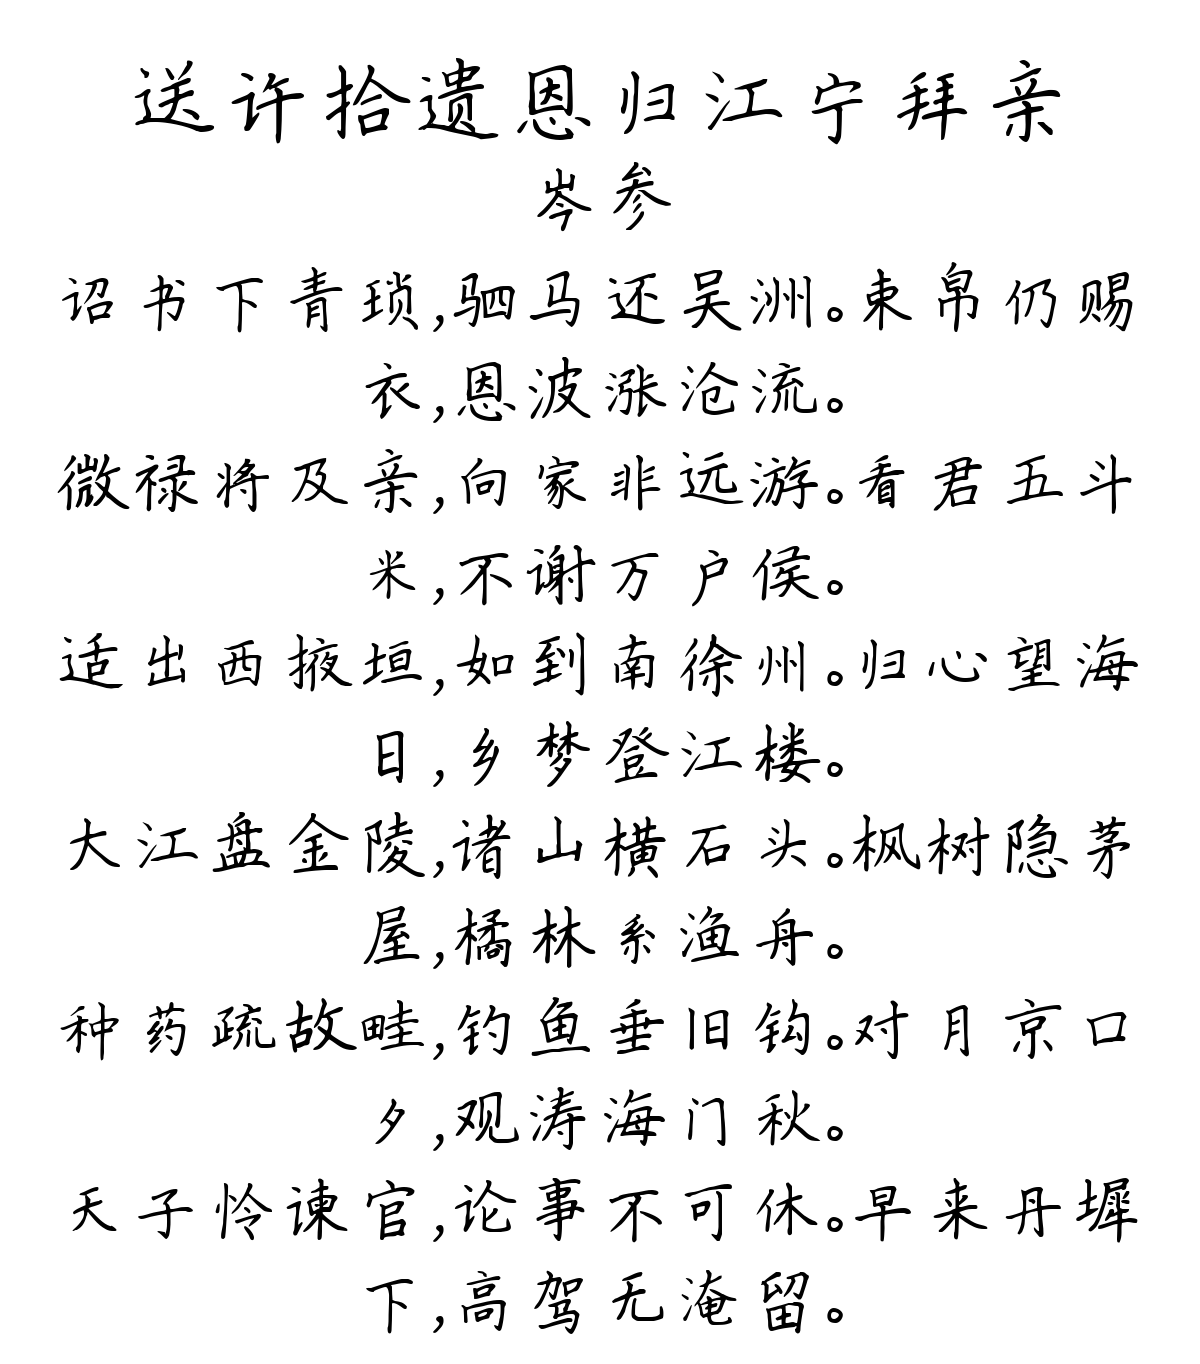 送许拾遗恩归江宁拜亲
岑参
诏书下青琐,驷马还吴洲。束帛仍赐
衣,恩波涨沧流。
微禄将及亲,向家非远游。看君五斗
米,不谢万户侯。
适出西掖垣,如到南徐州。归心望海
日,乡梦登江楼。
大江盘金陵,诸山横石头。枫树隐茅
屋,橘林系渔舟。
种药疏故畦,钓鱼垂旧钩。对月京口
夕,观涛海门秋。
天子怜谏官,论事不可休。早来丹墀
下,高驾无淹留。